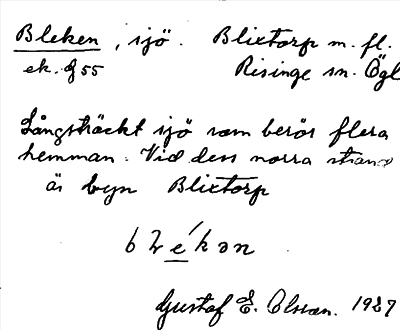 Bleken, sjö. Blixtorp m. fl.
ek. 9 55 Risinge sn. Ögl
Långsträckt sjö som berör flera
hemman. Vid dess norra strand
är byn Blixtorp
Gustaf E. Olsson. 1927